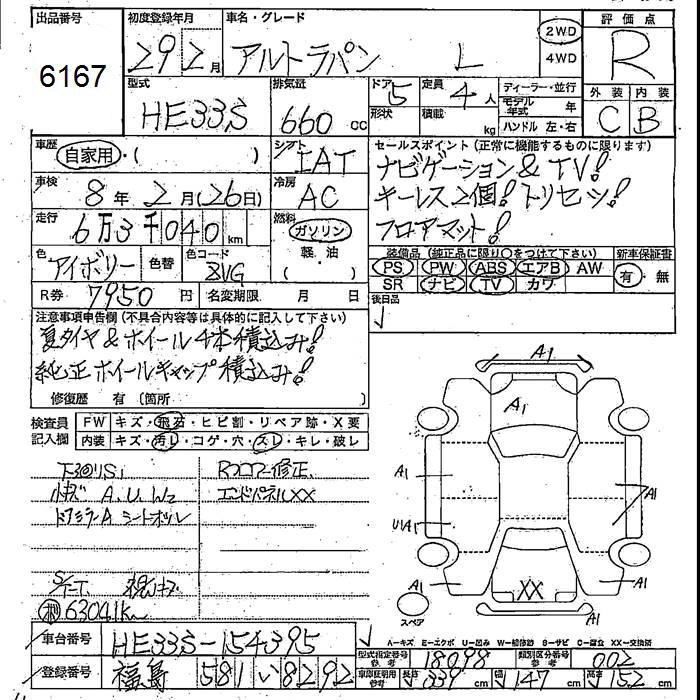 出品番号
6167
初度登録年月
29 2月
車名・グレード
アルトラパン L
2WD
4WD
評価点
R
型式
HE33S
排気量
660 CC
ドア 5
形状
定員 4人
積載 kg
ディーラー・並行
モデル年式 年
ハンドル 左・右
外装 内装
C B
車歴
自家用・( )
シフト
IAT
車検
8年2月(26日)
冷房
AC
走行
6万3千040km
燃料
ガソリン
軽・油
( )
色
アイボリー
色替
色コード
ZVG
R券 7950円
名変期限 月 日
セールスポイント(正常に機能するものに限ります)
ナビゲーション & TV!
キーレス2個!トリセツ!
フロアマット!
装備品(純正品に限り○をつけて下さい)
新車保証書
PS PW ABS エアB AW
SR ナビ TV カワ
有・無
後日品
注意事項申告欄(不具合内容等は具体的に記入して下さい)
夏タイヤ&ホイール4本積込み!
純正ホイールキャップ積込み!
修復歴 有〔箇所 〕
検査員記入欄
FW キズ・飛石・ヒビ割・リペア跡・X要
内装 キズ・汚れ・コゲ・穴・スレ・キレ・破レ
下回りS1
小キズ A.U.W2
ドアミラーA シートボルレ
Rフロアー修正
エンドパネルXX
63041km
A1
A1
A1
U1A1
A1
A1
A1
A1
XX
スペア
A-キズ E-エクボ U-凹み W-補修跡 S-サビ C-腐立 XX-交換済
車台番号
HE33S-154395
登録番号
福島 581 い 8292
型式指定番号 参考
18098
類別区分番号 参考
002
車庫証明用 参考
長さ 339 cm
幅 147 cm
高さ 152 cm